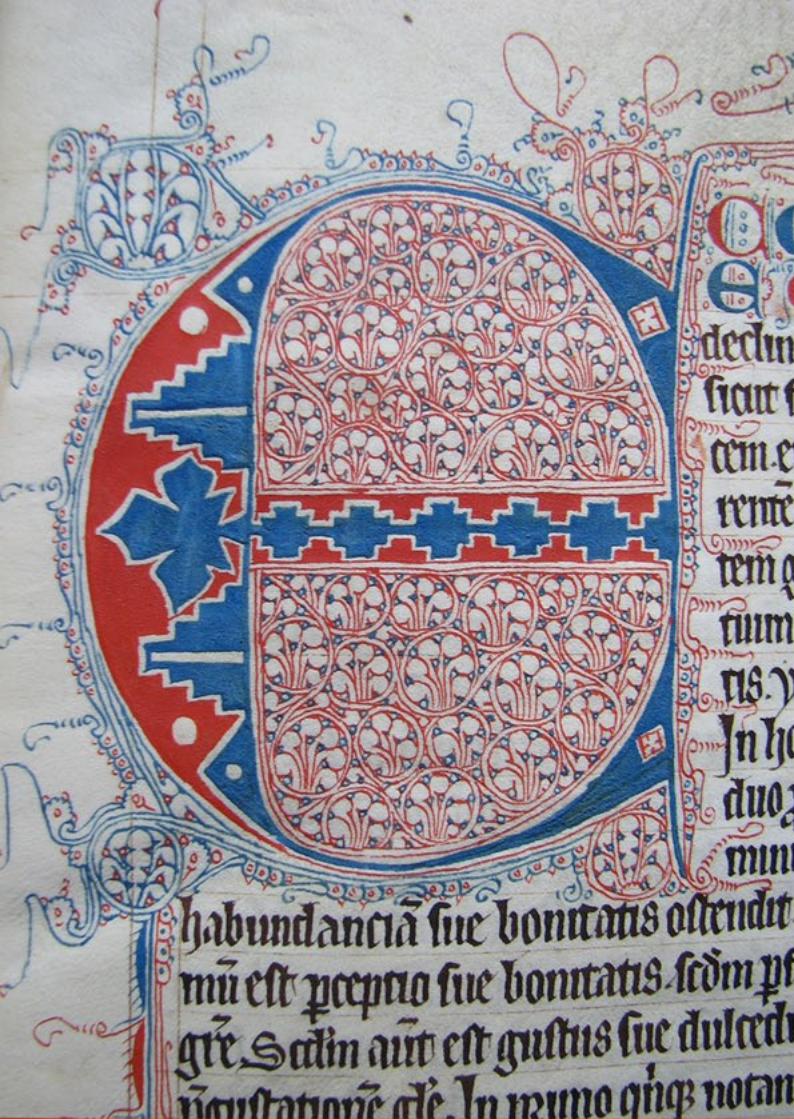 E
E
declin
sicut f
cem. e
rente᷑
tem g
tuum
tis. v
In ho
duo
mini
habundanciā sue bonitatis ostendit
mū est ꝑceptio sue bonitatis. scd̄m
gr̄e. Scd̄m aūt est gustus sue dulcedi
gl̄e. In primo notan